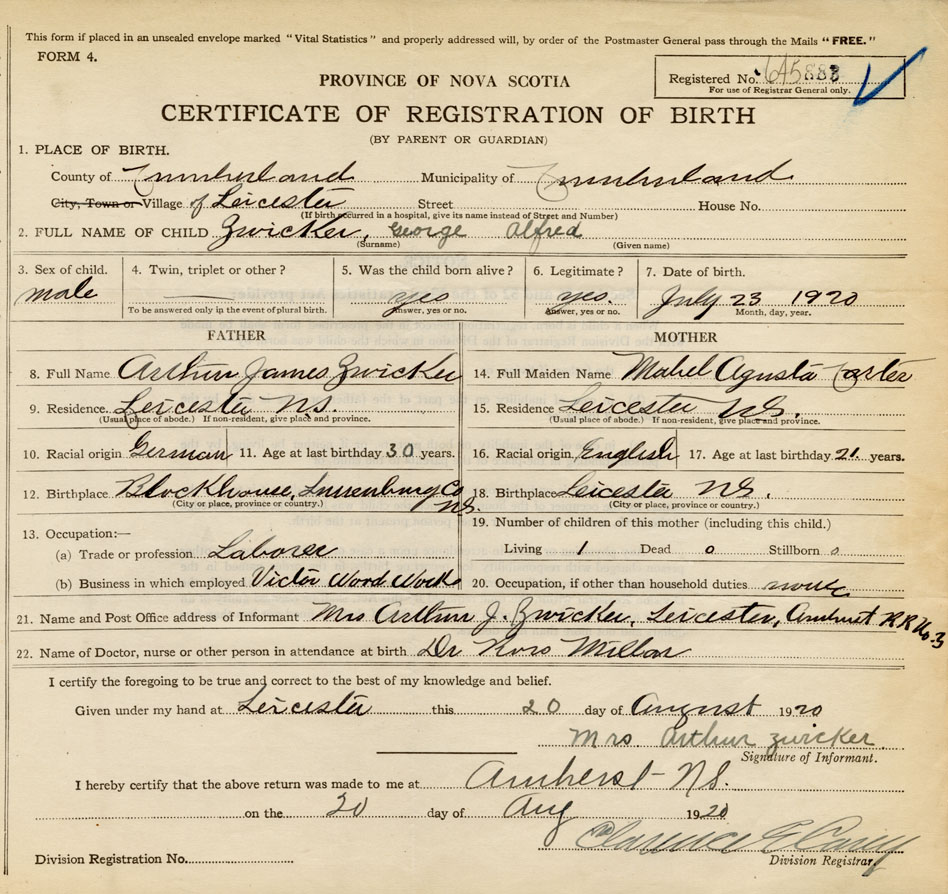 This form if placed in an unsealed envelope marked "Vital Statistics" and properly addressed will, by order of the Postmaster General pass through the Mails "FREE."
FORM 4.
PROVINCE OF NOVA SCOTIA
Registered No. 645883
For use of Registrar General only.
CERTIFICATE OF REGISTRATION OF BIRTH
(BY PARENT OR GUARDIAN)
1. PLACE OF BIRTH.
County of Cumberland Municipality of Cumberland
City, Town or Village of Leicester Street House No.
(If birth occurred in a hospital, give its name instead of Street and Number)
2. FULL NAME OF CHILD Zwicker, George Alfred
(Surname) (Given name)
3. Sex of child. 4. Twin, triplet or other? 5. Was the child born alive? 6. Legitimate? 7. Date of birth.
male yes yes. July 23 1920
To be answered only in the event of plural birth. Answer, yes or no. Answer, yes or no. Month, day, year.
FATHER
8. Full Name Arthur James Zwicker
9. Residence. Leicester NS.
(Usual place of abode.) If non-resident, give place and province.
10. Racial origin German 11. Age at last birthday 30 years.
12. Birthplace Blockhouse, Lunenburg Co NS.
(City or place, province or country.)
13. Occupation:—
(a) Trade or profession Laborer
(b) Business in which employed Victor Wood Works
MOTHER
14. Full Maiden Name Mabel Agusta Carter
15. Residence Leicester NS.
(Usual place of abode.) If non-resident, give place and province.
16. Racial origin English 17. Age at last birthday 21. years.
18. Birthplace Leicester NS.
(City or place, province or country.)
19. Number of children of this mother (including this child.)
Living 1 Dead 0 Stillborn 0
20. Occupation, if other than household duties none
21. Name and Post Office address of Informant Mrs Arthur J. Zwicker, Leicester, Amherst RR No.3
22. Name of Doctor, nurse or other person in attendance at birth Dr Ross Millar
I certify the foregoing to be true and correct to the best of my knowledge and belief.
Given under my hand at Leicester this 20 day of August 1920
Mrs Arthur Zwicker
Signature of Informant.
I hereby certify that the above return was made to me at Amherst NS.
on the 20 day of Aug 1920
Clarence E Casey
Division Registration No. Division Registrar.